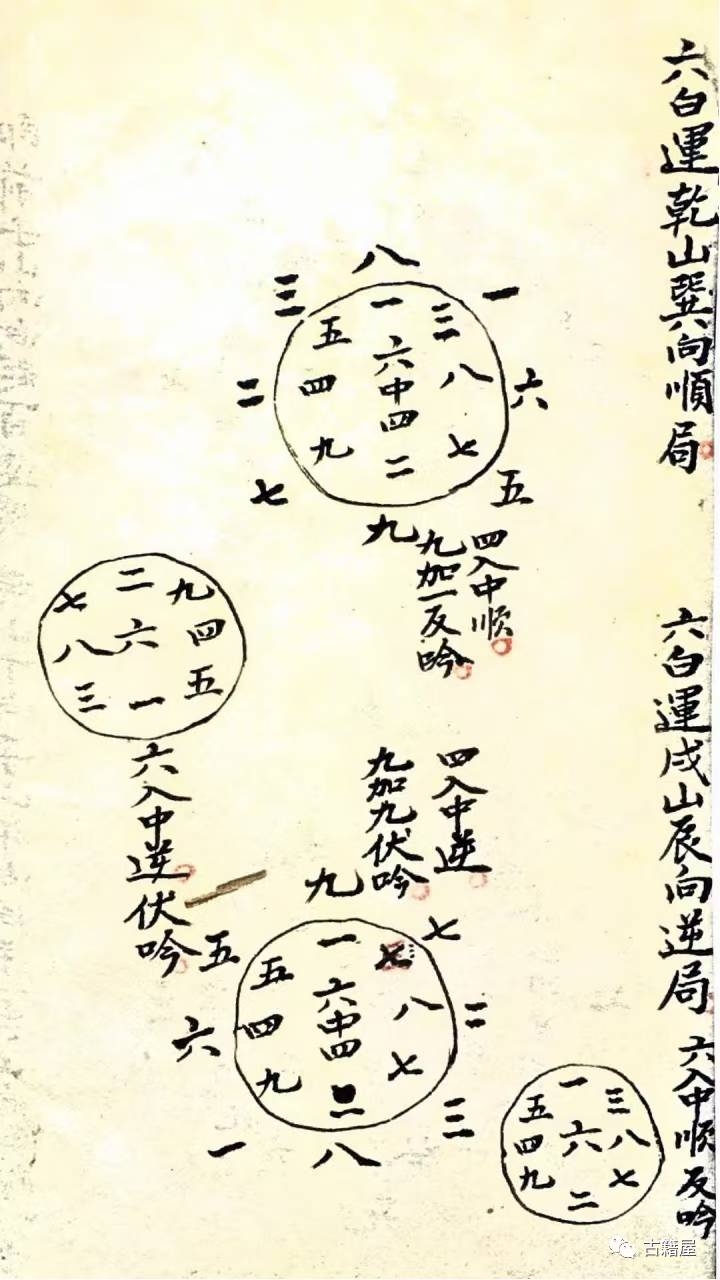 六白運乾山巽向順局
八
三 一
一
五 三
六
二 四 中 八 六
四
九 七
二
七 五
九
四入中順
九加一反吟
二
七 九
八 六 四
三 五
一
六入中逆伏吟
六白運戌山辰向逆局
六入中順反吟
四入中逆
九加九伏吟
九
五 七
一
五 七
六
六 四 中 八 二
四
九 七
二
一 三
八
一
五 三
四 六 八
九 七
二
古籍屋